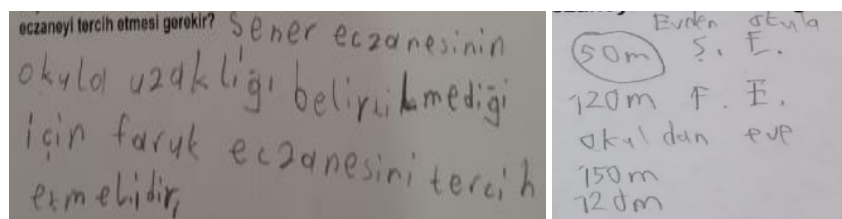 eczaneyi tercih etmesi gerekir? Şener eczanesinin
okula uzaklığı belirtilmediği
için faruk eczanesini tercih
etmelidir,
Evden okula
50m Ş. E.
120m F. E.
okuldan eve
150m
120m